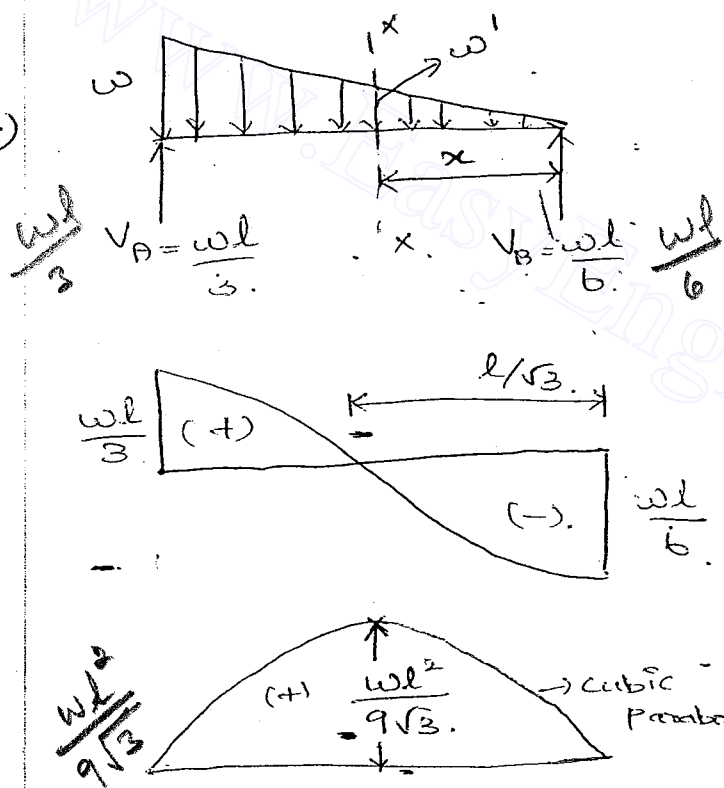 www.EasyEng
x
ω'
ω
)
x
ωl/3 V_A = ωl/3. x. V_B = ωl/6. ωl/6
l/√3.
ωl/3 (+)
(-). ωl/6.
ωl²/9√3 (+) ωl²/9√3. → cubic
parabo